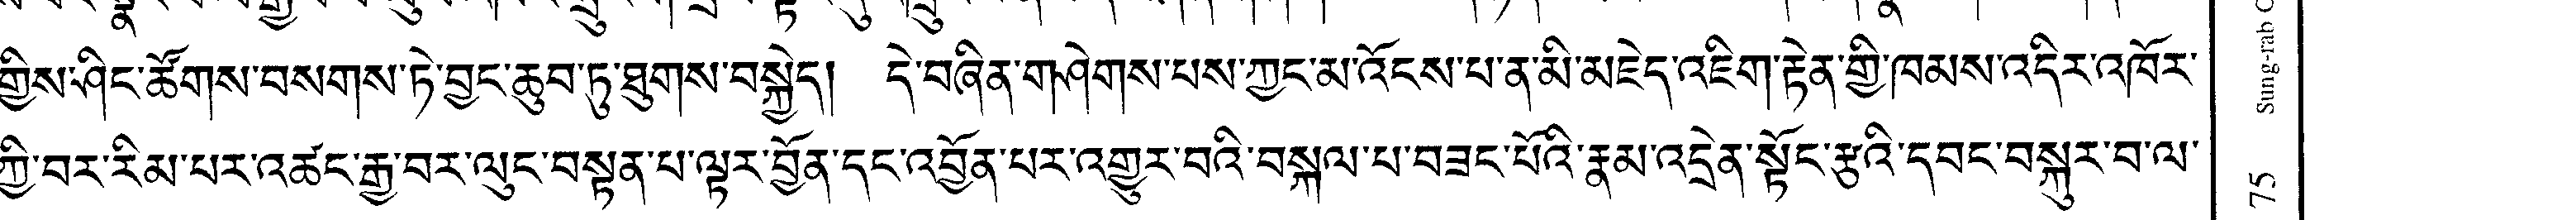 གྱིས་ཤིང་ཚོགས་བསགས་ཏེ་བྱང་ཆུབ་ཏུ་ཐུགས་བསྐྱེད།  དེ་བཞིན་གཤེགས་པས་ཀྱང་མ་འོངས་པ་ན་མི་མཇེད་འཇིག་རྟེན་གྱི་ཁམས་འདིར་འཁོར་
ཀྱི་བར་རིམ་པར་འཚང་རྒྱ་བར་ལུང་བསྟན་པ་ལྟར་བྱོན་དང་འབྱོན་པར་འགྱུར་བའི་བསྐལ་པ་བཟང་པོའི་རྣམ་འདྲེན་སྟོང་རྩའི་དབང་བསྐུར་བ་ལ་
75 Sung-rab